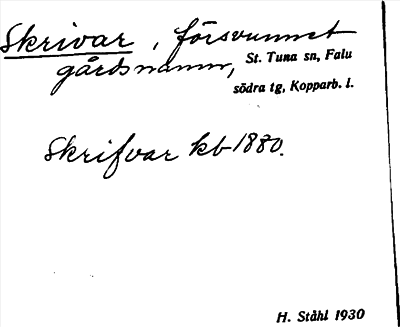 Skrivar, försvunnet
gårdsnamn, St. Tuna sn, Falu
södra tg, Kopparb. l.
Skrifvar kb 1880.
H. Ståhl 1930